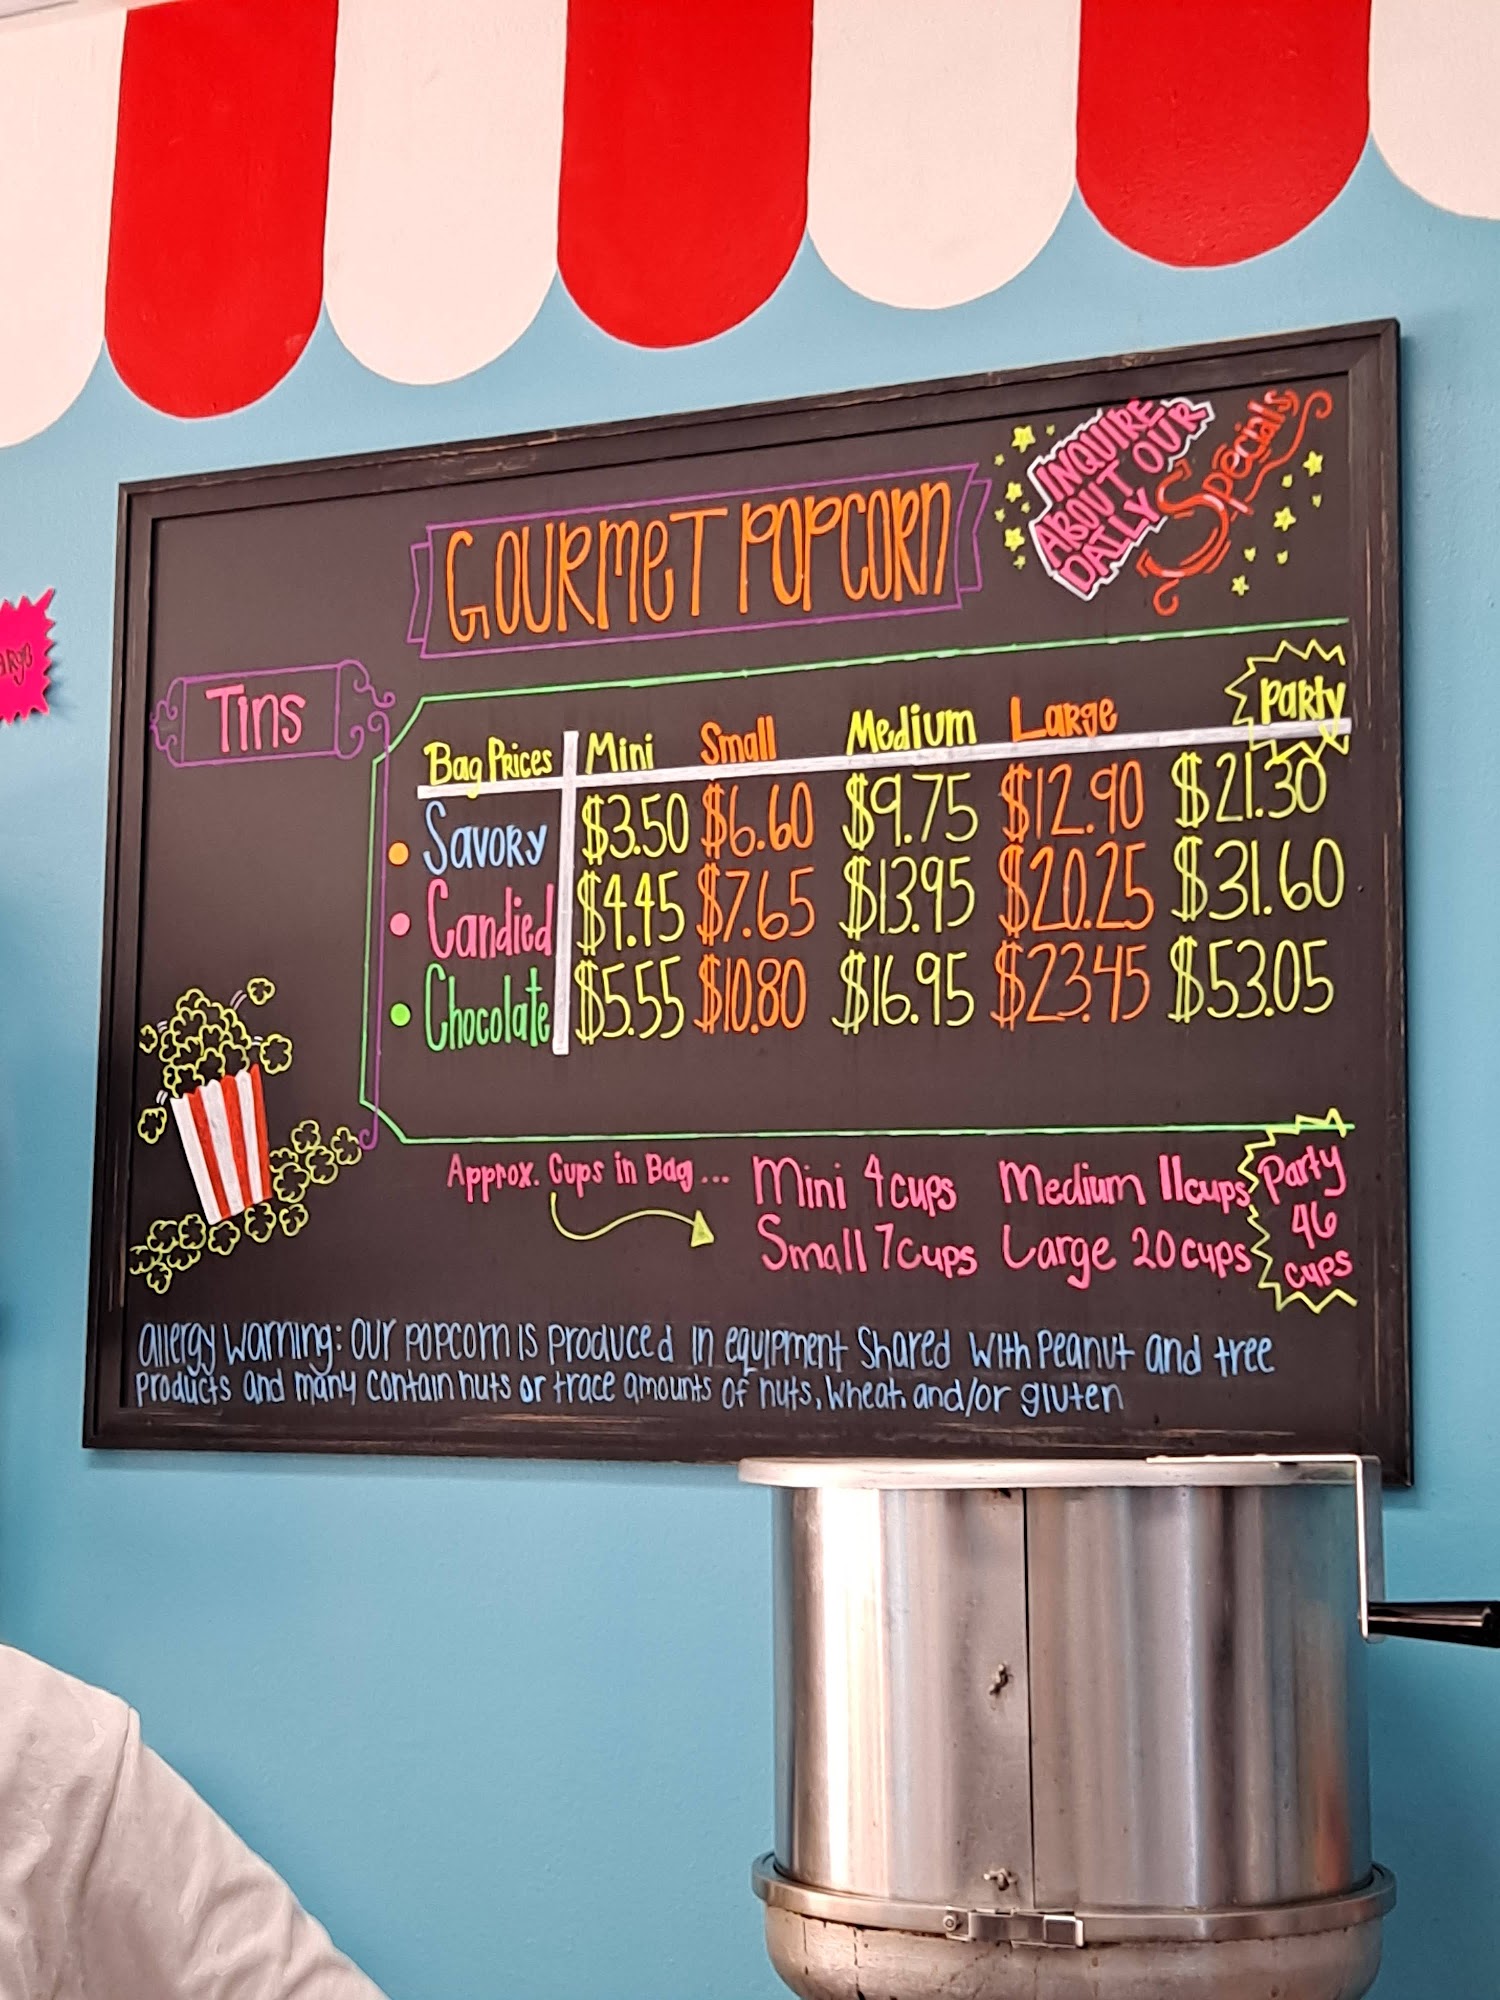 INQUIRE
ABOUT OUR
DAILY Specials
GOURMET POPCORN
Tins
Bag Prices Mini Small Medium Large Party
Savory $3.50 $6.60 $9.75 $12.90 $21.30
Candied $4.45 $7.65 $13.95 $20.25 $31.60
Chocolate $5.55 $10.80 $16.95 $23.45 $53.05
Approx. Cups in Bag... Mini 4 cups Medium 11 cups Party
Small 7 cups Large 20 cups 46
cups
Allergy Warning: Our popcorn is produced in equipment shared with peanut and tree
products and many contain nuts or trace amounts of nuts, wheat, and/or gluten